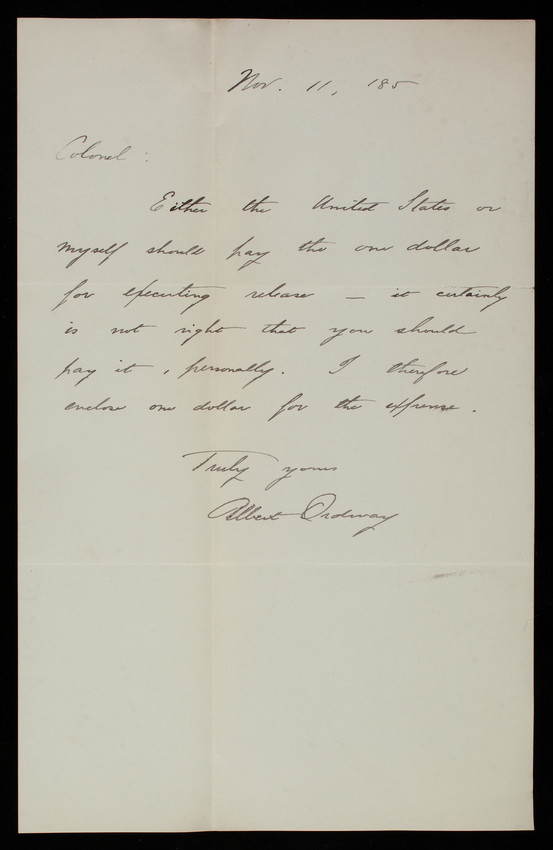 Nov. 11, 185
Colonel:
Either the United States or
myself should pay the one dollar
for executing release — it certainly
is not right that you should
pay it, personally. I therefore
enclose one dollar for the expense.
Truly yours
Albert Ordway